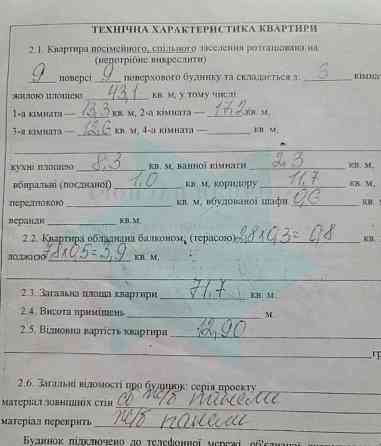 ТЕХНІЧНА ХАРАКТЕРИСТИКА КВАРТИРИ
2.1. Квартира посімейного, спільного заселення розташована на
(непотрібне викреслити)
9 поверсі 9 поверхового будинку та складається з 3 кімна
жилою площею 43,1 кв. м, у тому числі
1-а кімната — 13,3 кв. м, 2-а кімната — 17,2 кв. м,
3-я кімната — 12,6 кв. м, 4-а кімната — кв. м,
кухні площею 8,3 кв. м, ванної кімнати 2,3 кв. м,
вбиральні (поєднаної) 1,0 кв. м, коридору 11,7 кв. м,
передпокою кв. м, вбудованої шафи 0,6 кв. м
веранди кв.м.
2.2. Квартира обладнана балконом, (терасою) 2,8х0,3= 0,8 кв.
лоджією 7,8х0,5=3,9 кв. м.
2.3. Загальна площа квартири 71,7 кв. м.
2.4. Висота приміщень м.
2.5. Відновна вартість квартири 12,90
гр
2.6. Загальні відомості про будинок: серія проекту
матеріал зовнішніх стін ж/б панелі
матеріал перекрить ж/б панелі
Будинок підключено до телефонної мережі, об'єднаної